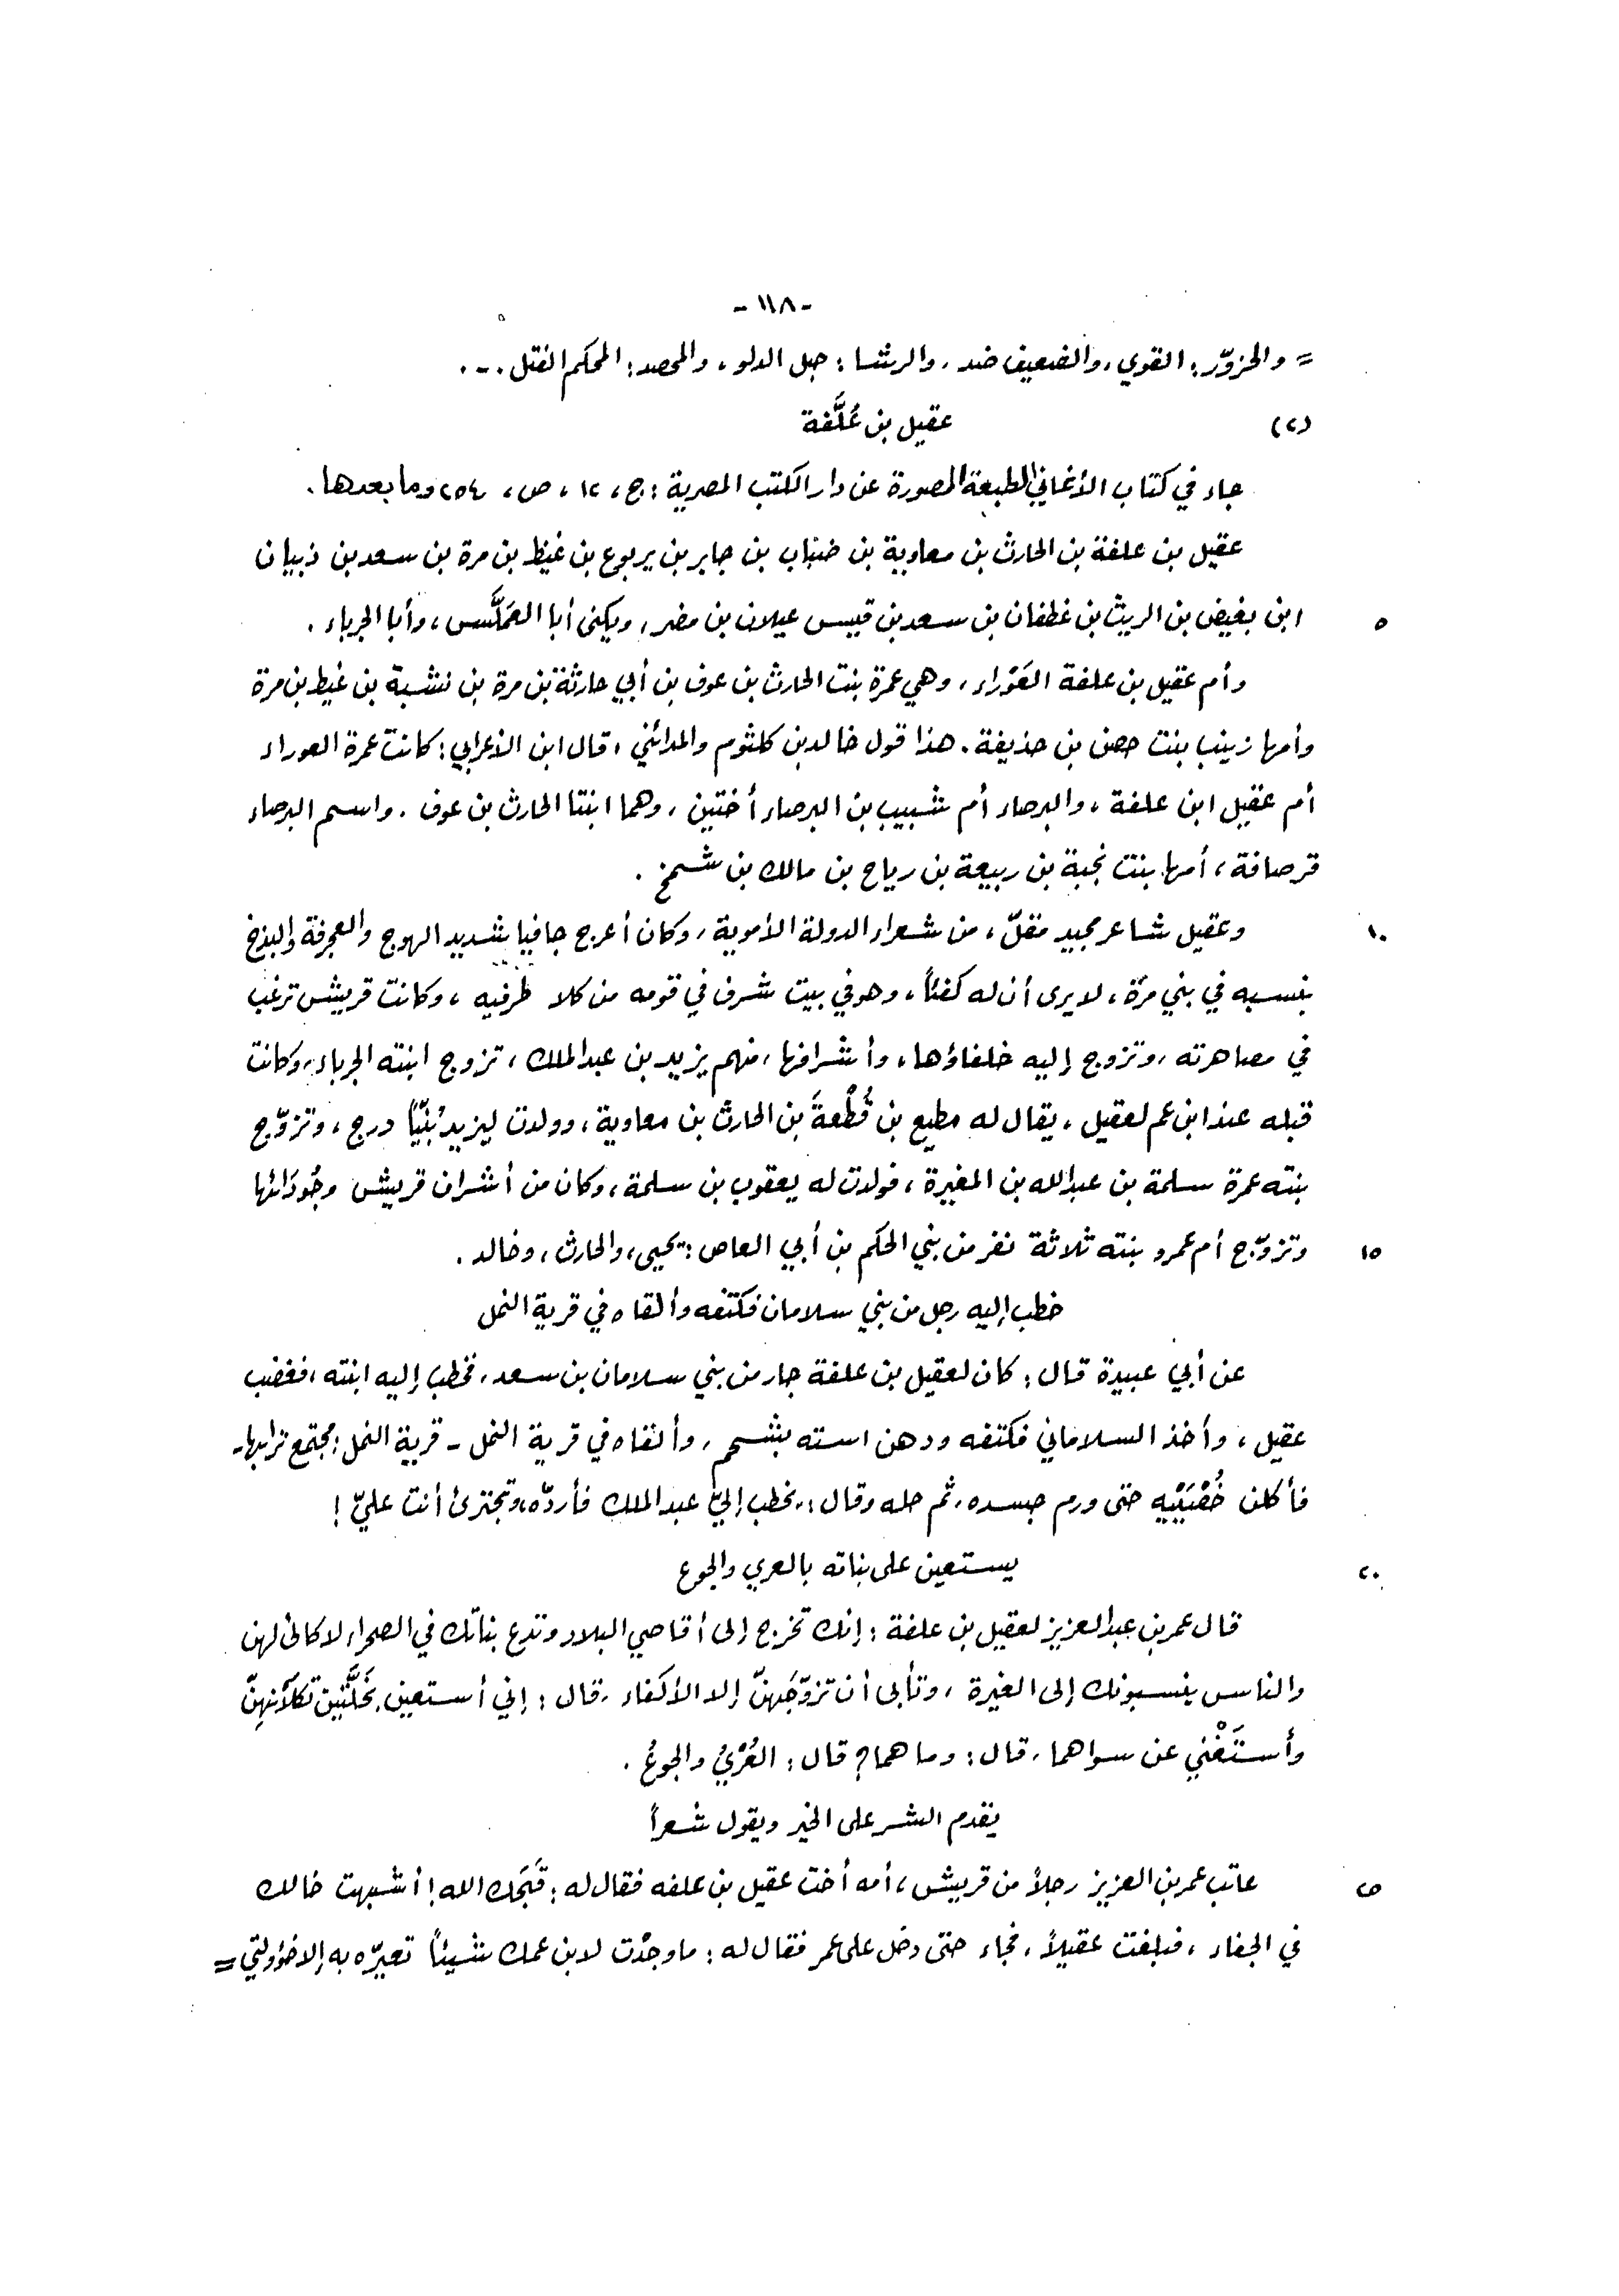 - ١١٨ -
= والحزوّر: القوي، والضعيف ضد، والرشا: حبل الدلو، والمحصد: المحكم الفتل.
(٢) عقيل بن عُلَّفة
جاء في كتاب الأغاني الطبعة المصورة عن دار الكتب المصرية: ج، ١٢، ص، ٢٥٤ وما بعدها.
عقيل بن علفة بن الحارث بن معاوية بن ضباب بن جابر بن يربوع بن غيظ بن مرة بن سعد بن ذبيان
٥ ابن بغيض بن الريث بن غطفان بن سعد بن قيس عيلان بن مضر، ويكنى أبا العَمَلَّس، وأبا الجرباء.
وأم عقيل بن علفة العَوْراء، وهي عمرة بنت الحارث بن عوف بن أبي حارثة بن مرة بن نشبة بن غيظ بن مرة
وأمها زينب بنت حصن بن حذيفة. هذا قول خالد بن كلثوم والمدائني، قال ابن الأعرابي: كانت عمرة العوراء
أم عقيل ابن علفة، والبرصاء أم شبيب بن البرصاء أختين، وهما ابنتا الحارث بن عوف. واسم البرصاء
قرصافة، أمها بنت نجبة بن ربيعة بن رياح بن مالك بن شمخ.
١٠ وعقيل شاعر مجيد مقلّ، من شعراء الدولة الأموية، وكان أعرج جافيا شديد الهوج والعجرفة والبذخ
بنسبه في بني مرّة، لا يرى أن له كفئاً، وهو في بيت شرف في قومه من كلا طرفيه، وكانت قريش ترغب
في مصاهرته، وتزوج إليه خلفاؤها، وأشرافها، منهم يزيد بن عبد الملك، تزوج ابنته الجرباء، وكانت
قبله عند ابن عم لعقيل، يقال له مطيع بن قُطْعةَ بن الحارث بن معاوية، وولدت ليزيد بُنَيّاً درج، وتزوّج
بنته عمرة سلمة بن عبد الله بن المغيرة، فولدت له يعقوب بن سلمة، وكان من أشراف قريش وجُودَائها
١٥ وتزوّج أم عمرو بنته ثلاثة نفر من بني الحكم بن أبي العاص: يحيى، والحارث، وخالد.
خطب إليه رجل من بني سلامان فكتفه وألقاه في قرية النمل
عن أبي عبيدة قال: كان لعقيل بن علفة جار من بني سلامان بن سعد، فخطب إليه ابنته، فغضب
عقيل، وأخذ السلاماني فكتفه ودهن استه بشحم، وألقاه في قرية النمل - قرية النمل: مجتمع ترابها -
فأكلن خُصْيَيْه حتى ورم جسده، ثم حله وقال: يخطب إليّ عبد الملك فأردّه، وتجترئ أنت عليّ!
٢٠ يستعين على بناته بالعري والجوع
قال عمر بن عبد العزيز لعقيل بن علفة: إنك تخرج إلى أقاصي البلاد وتدع بناتك في الصحراء لا كالئ لهن
والناس ينسبونك إلى الغيرة، وتأبى أن تزوّجَهنّ إلا الأكفاء، قال: إني أستعين بخَلَّتين تكلآنهنّ
وأستَغْني عن سواهما، قال: وما هما؟ قال: العُرْيُ والجوعُ.
يقدم الشر على الخير ويقول شعراً
٢٥ عاتب عمر بن العزيز رجلاً من قريش، أمه أخت عقيل بن علفه فقال له: قَبَحَك الله! أشبهت خالك
في الجفاء، فبلغت عقيلاً، فجاء حتى دخل على عمر فقال له: ما وجدْت لابن عمك شيئاً تعيّره به إلا خؤولتي =